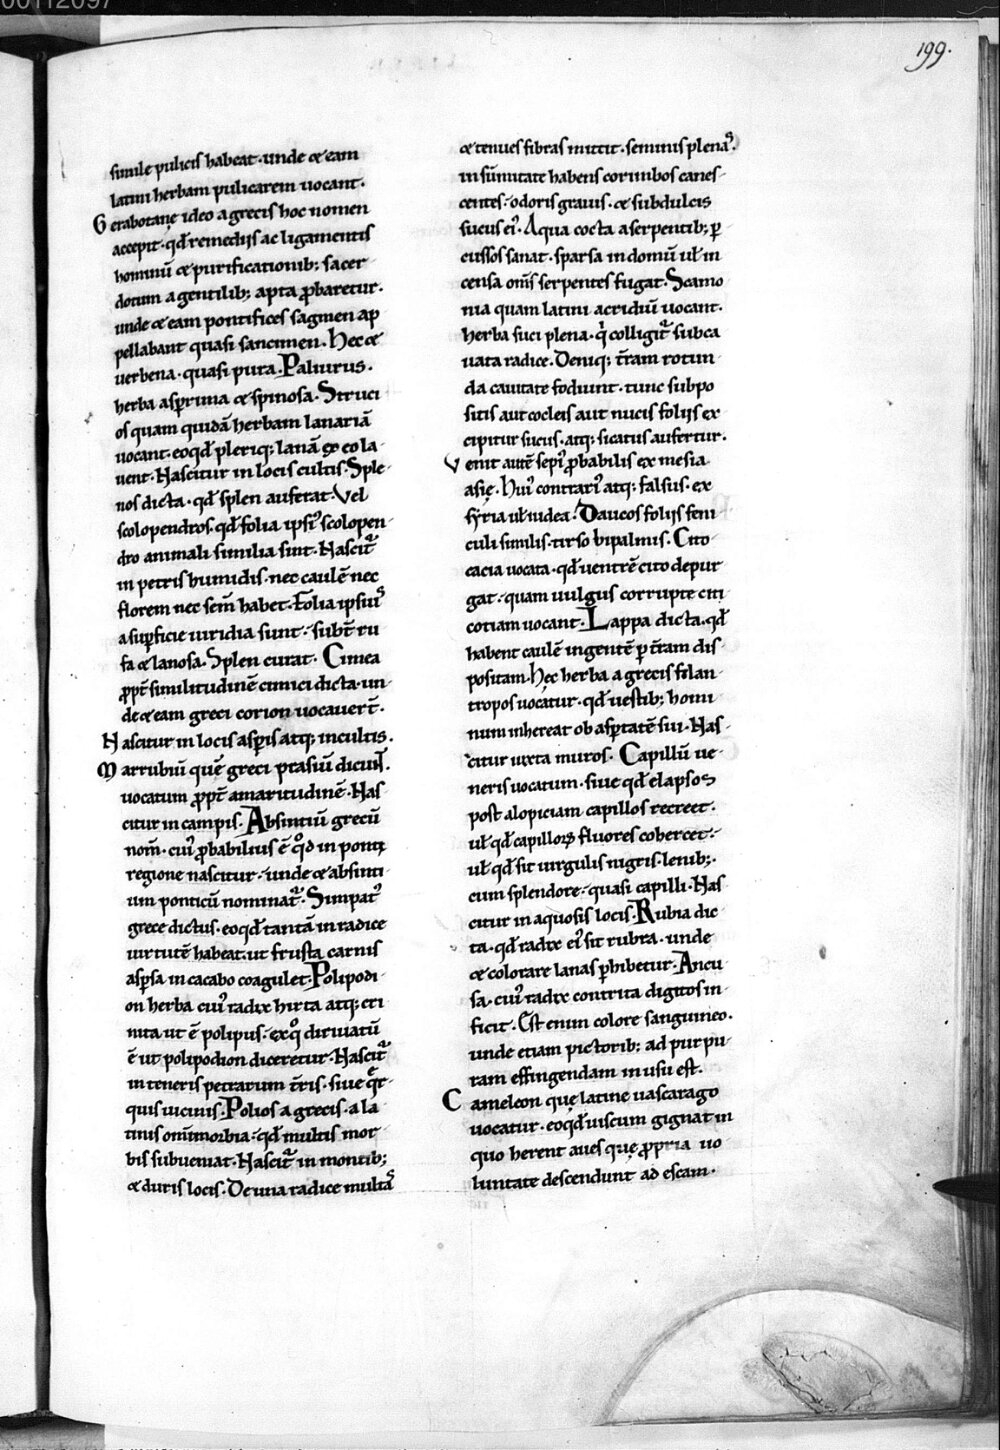 00112097
199.
simile pulicis habeat. unde & eam
latini herbam pulicarem uocant.
Gerabotanę ideo a grecis hoc nomen
accepit. qđ remediis ac ligamentis
hominū & purificationib; sacer
dotum a gentilib; apta ꝓbaretur.
unde & eam pontifices sagmen ap
pellabant quasi sancimen. Hec &
uerbena. quasi pura. Paliurus.
herba asꝑrima & spinosa. Struci
os quam quidā herbam lanariā
uocant. eoqđ pleriq; lanā ex eo la
uent. Nascitur in locis cultis. Sple
nos dicta. qđ splen auferat. Vel
scolopendros. qđ folia ipsiꝰ scolopen
dro animali similia sint. Nascit᷑
in petris humidis. nec caulē nec
florem nec sem̄ habet. Folia ipsiuꝰ
a suꝑficie uiridia sunt. subt̄ ru
fa & lanosa. Splen curat. Cimea
ꝓpt̄ similitudinē cimici dicta. un
de & eam greci corion uocauer̄t.
Nascitur in locis asꝑis atq; incultis.
Marrubiū quē greci prasiū dicuñt.
uocatum ꝓpt̄ amaritudinē. Nas
citur in campis. Absintiū grecū
nom̄. cuiꝰ ꝓbabilius ē qđ in pontę
regione nascitur. unde & absinti
um ponticū nominat᷑. Simpatꝰ
grece dictus. eoqđ tantā in radice
uirtutē habeat. ut frusta carnis
asꝑsa in cacabo coagulet. Polipodi
on herba cuiꝰ radix hirta atq; cri
nita ut ē polipus. ex qͦ diriuatū
ē ut polipodion diceretur. Nascit᷑
in teneris petrarum t̄ris. siue q̄r
quis uicinis. Polios a grecis. a la
tinis om̄imorbia. qđ multis mor
bis subueniat. Nascit᷑ in montib;
& duris locis. De una radice multaꝰ
& tenues fibras mittit. seminis plenaꝰ.
in sūmitate habens corimbos canes
centes. odoris grauis. & subdulcis
sucus eiꝰ. Aqua cocta a serpentib; ꝑ
cussos sanat. sparsa in domū uł in
censa om̄s serpentes fugat. Scamo
nia quam latini acridiū uocant.
herba suci plena. q̇ colligit᷑ subca
uata radice. Deniq; t̄ram rotun
da cauitate fodiunt. tunc subpo
sitis aut cocleis aut nucis foliis ex
cipitur sucus. atq; sicatus aufertur.
Venit autē sepiꝰ ꝓbabilis ex mesia
asię. Huiꝰ contrariꝰ atq; falsus. ex
syria uł iudea. Daucos foliis feni
culi similis. tirso bipalmis. Cito
cacia uocata. qđ uentrē cito depur
gat. quam uulgus corrupte citi
cotiam uocant. Lappa dicta. qđ
habent caulē ingentē ꝑ t̄ram dis
positam. Hęc herba a grecis filan
tropos uocatur. qđ uestib; homi
num inhereat ob asꝑitatē sui. Nas
citur iuxta muros. Capillū ue
neris uocatum. siue qđ elapsos
post alopiciam capillos recreet.
uł qđ capilloꝝ fluores cohercet.
uł qđ sit uirgulis nigris. lenib;.
cum splendore. quasi capilli. Nas
citur in aquosis locis. Rubia dic
ta. qđ radix eiꝰ sit rubra. unde
& colorare lanas ꝑhibetur. Ancu
sa. cuiꝰ radix contrita digitos in
ficit. Est enim colore sanguineo.
unde etiam pictorib; ad purpu
ram effingendam in usu est.
Cameleon quę latine uascarago
uocatur. eoqđ uiscum gignat in
quo herent aues quę ꝓpria uo
luntate descendunt ad escam.